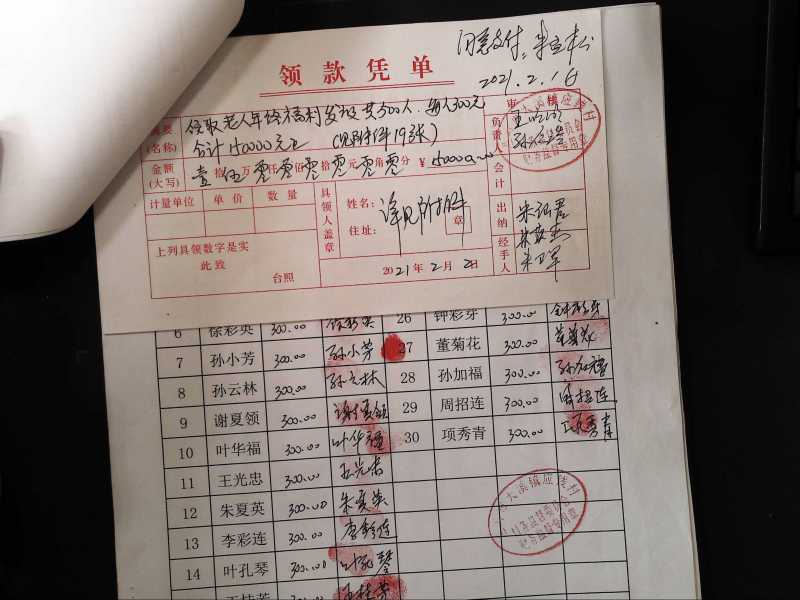 同意支付:
2021.2.16
领款凭单
摘要
(名称)
领取老人年终福利发放共500人.每人300元
合计150000元正 (见附件19张)
金额
(大写)
壹拾伍万零仟零佰零拾零元零角零分 ¥150000.00
计量单位 单价 数量
具领人盖章
姓名:
住址:
详见附件
章
上列具领数字是实
此致
台照
2021年2月2日
审核
负责人
会计
出纳
经手人
6 徐彩英 300.00 徐彩英 26 钟彩芽 300.00
7 孙小芳 300.00 孙小芳 27 董菊花 300.00 董菊花
8 孙云林 300.00 孙云林 28 孙加福 300.00 孙加福
9 谢夏领 300.00 谢夏领 29 周招连 300.00 周招连
10 叶华福 300.00 叶华福 30 项秀青 300.00 项秀青
11 王光忠 300.00 王光忠
12 朱夏英 300.00 朱夏英
13 李彩连 300.00 李彩连
14 叶孔琴 300.00 叶孔琴
大溪镇应